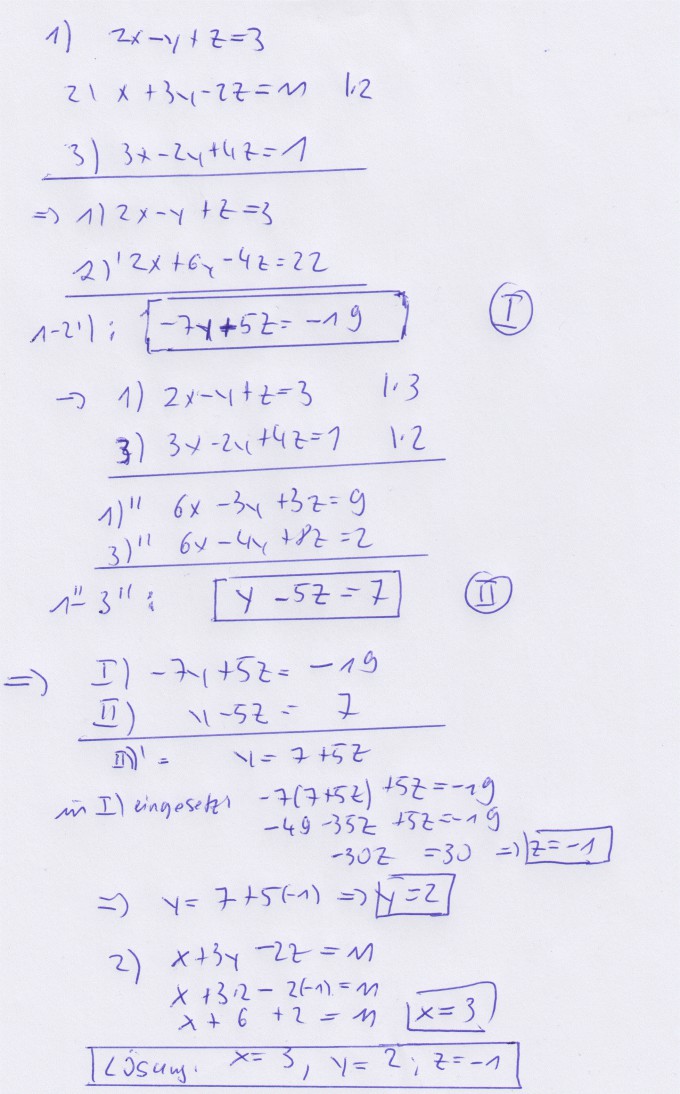 1) 2x-y+z=3
2) x+3y-2z=11 |·2
3) 3x-2y+4z=1
=> 1) 2x-y+z=3
2)' 2x+6y-4z=22
1-2'): -7y+5z=-19 I
-> 1) 2x-y+z=3 |·3
3) 3x-2y+4z=1 |·2
1)'' 6x-3y+3z=9
3)'' 6x-4y+8z=2
1''-3'': y-5z=7 II
=> I) -7y+5z=-19
II) y-5z=7
II)'= y=7+5z
in I) eingesetzt -7(7+5z)+5z=-19
-49-35z+5z=-19
-30z=30 => z=-1
=> y=7+5(-1) => y=2
2) x+3y-2z=11
x+3·2-2(-1)=11
x+6+2=11 x=3
Lösung: x=3, y=2; z=-1